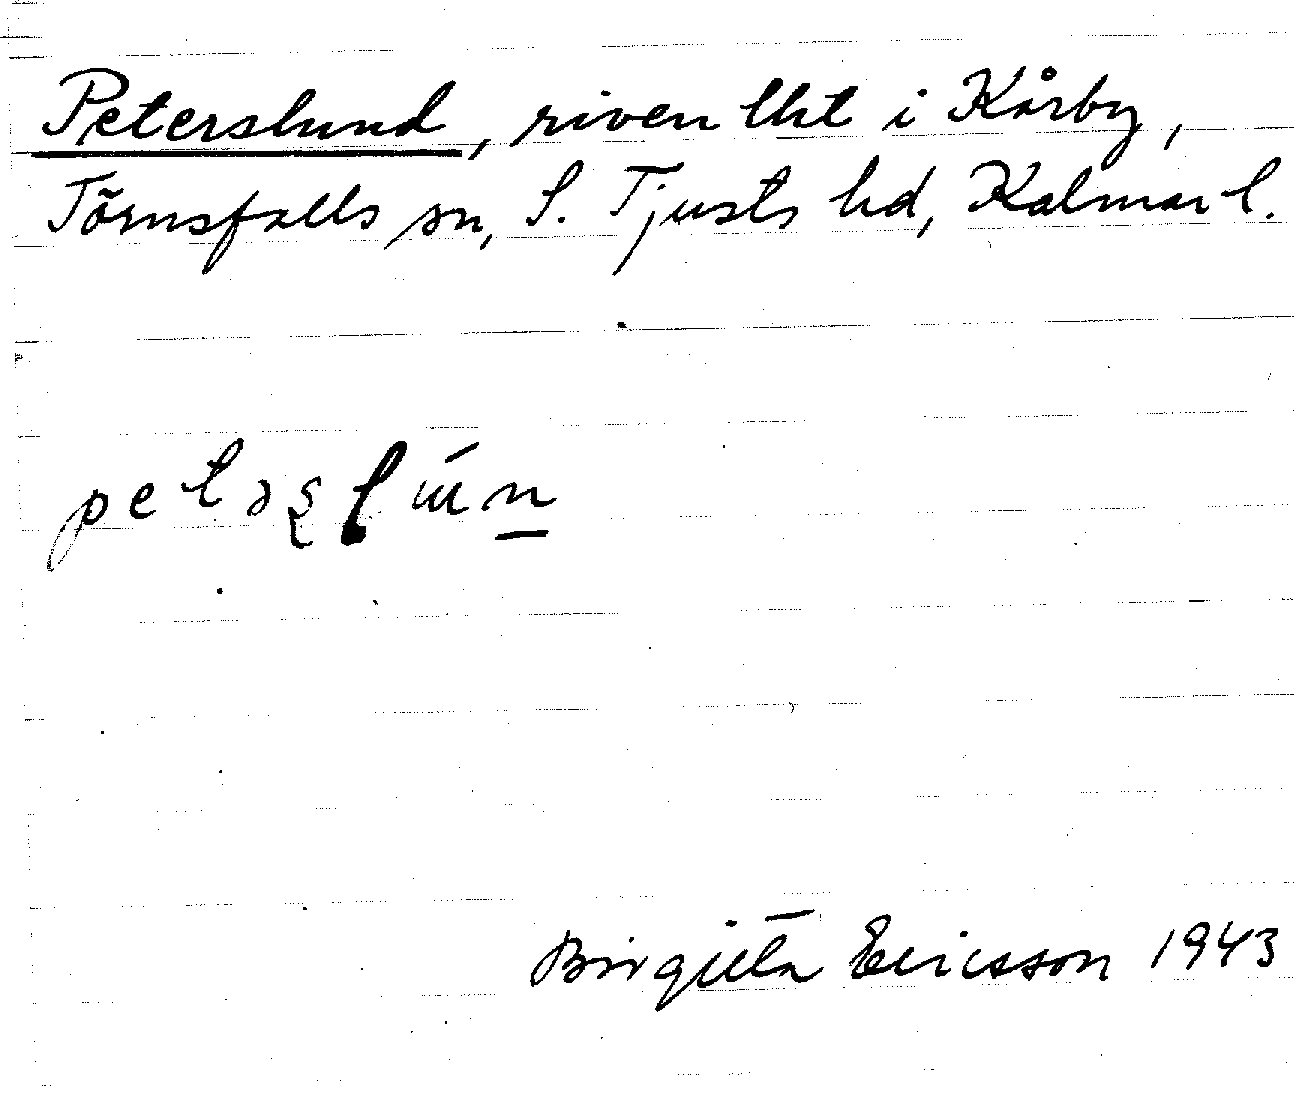 Peterslund, riven lht i Kårby,
Törnsfalls sn, S. Tjusts hd, Kalmar l.
Birgitta Ericsson 1943